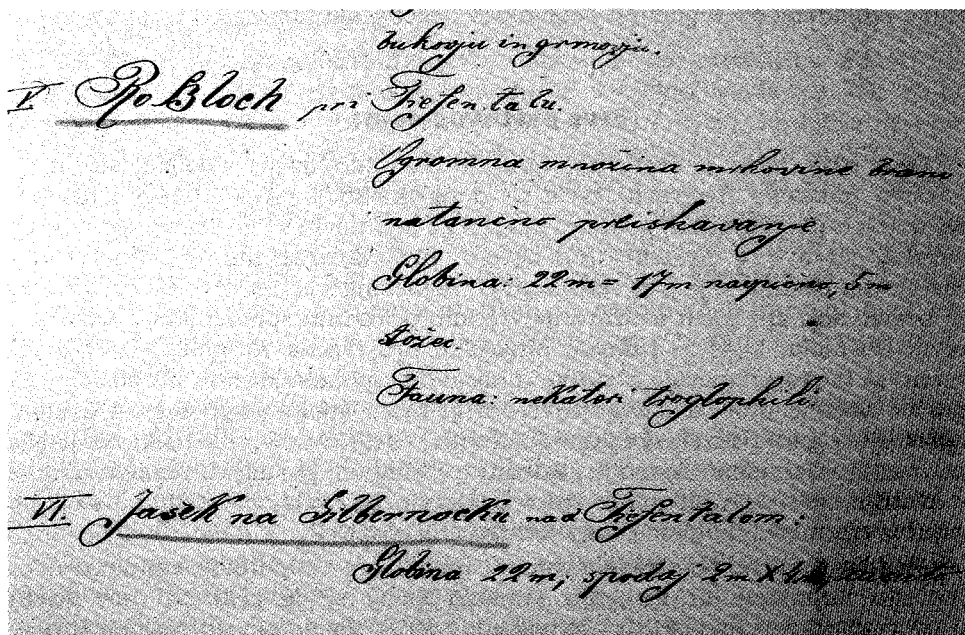 bukovju in grmovju.
V. Roßloch pri Tiefentalu.
Ogromna množina mrhovine brani
natančno preiskavanje
Globina: 22m = 17m navpično, 5m
stožec.
Fauna: nekateri troglophili.
VI. Jašek na Silbernocku nad Tiefentalom:
Globina 22m, spodaj 2m X